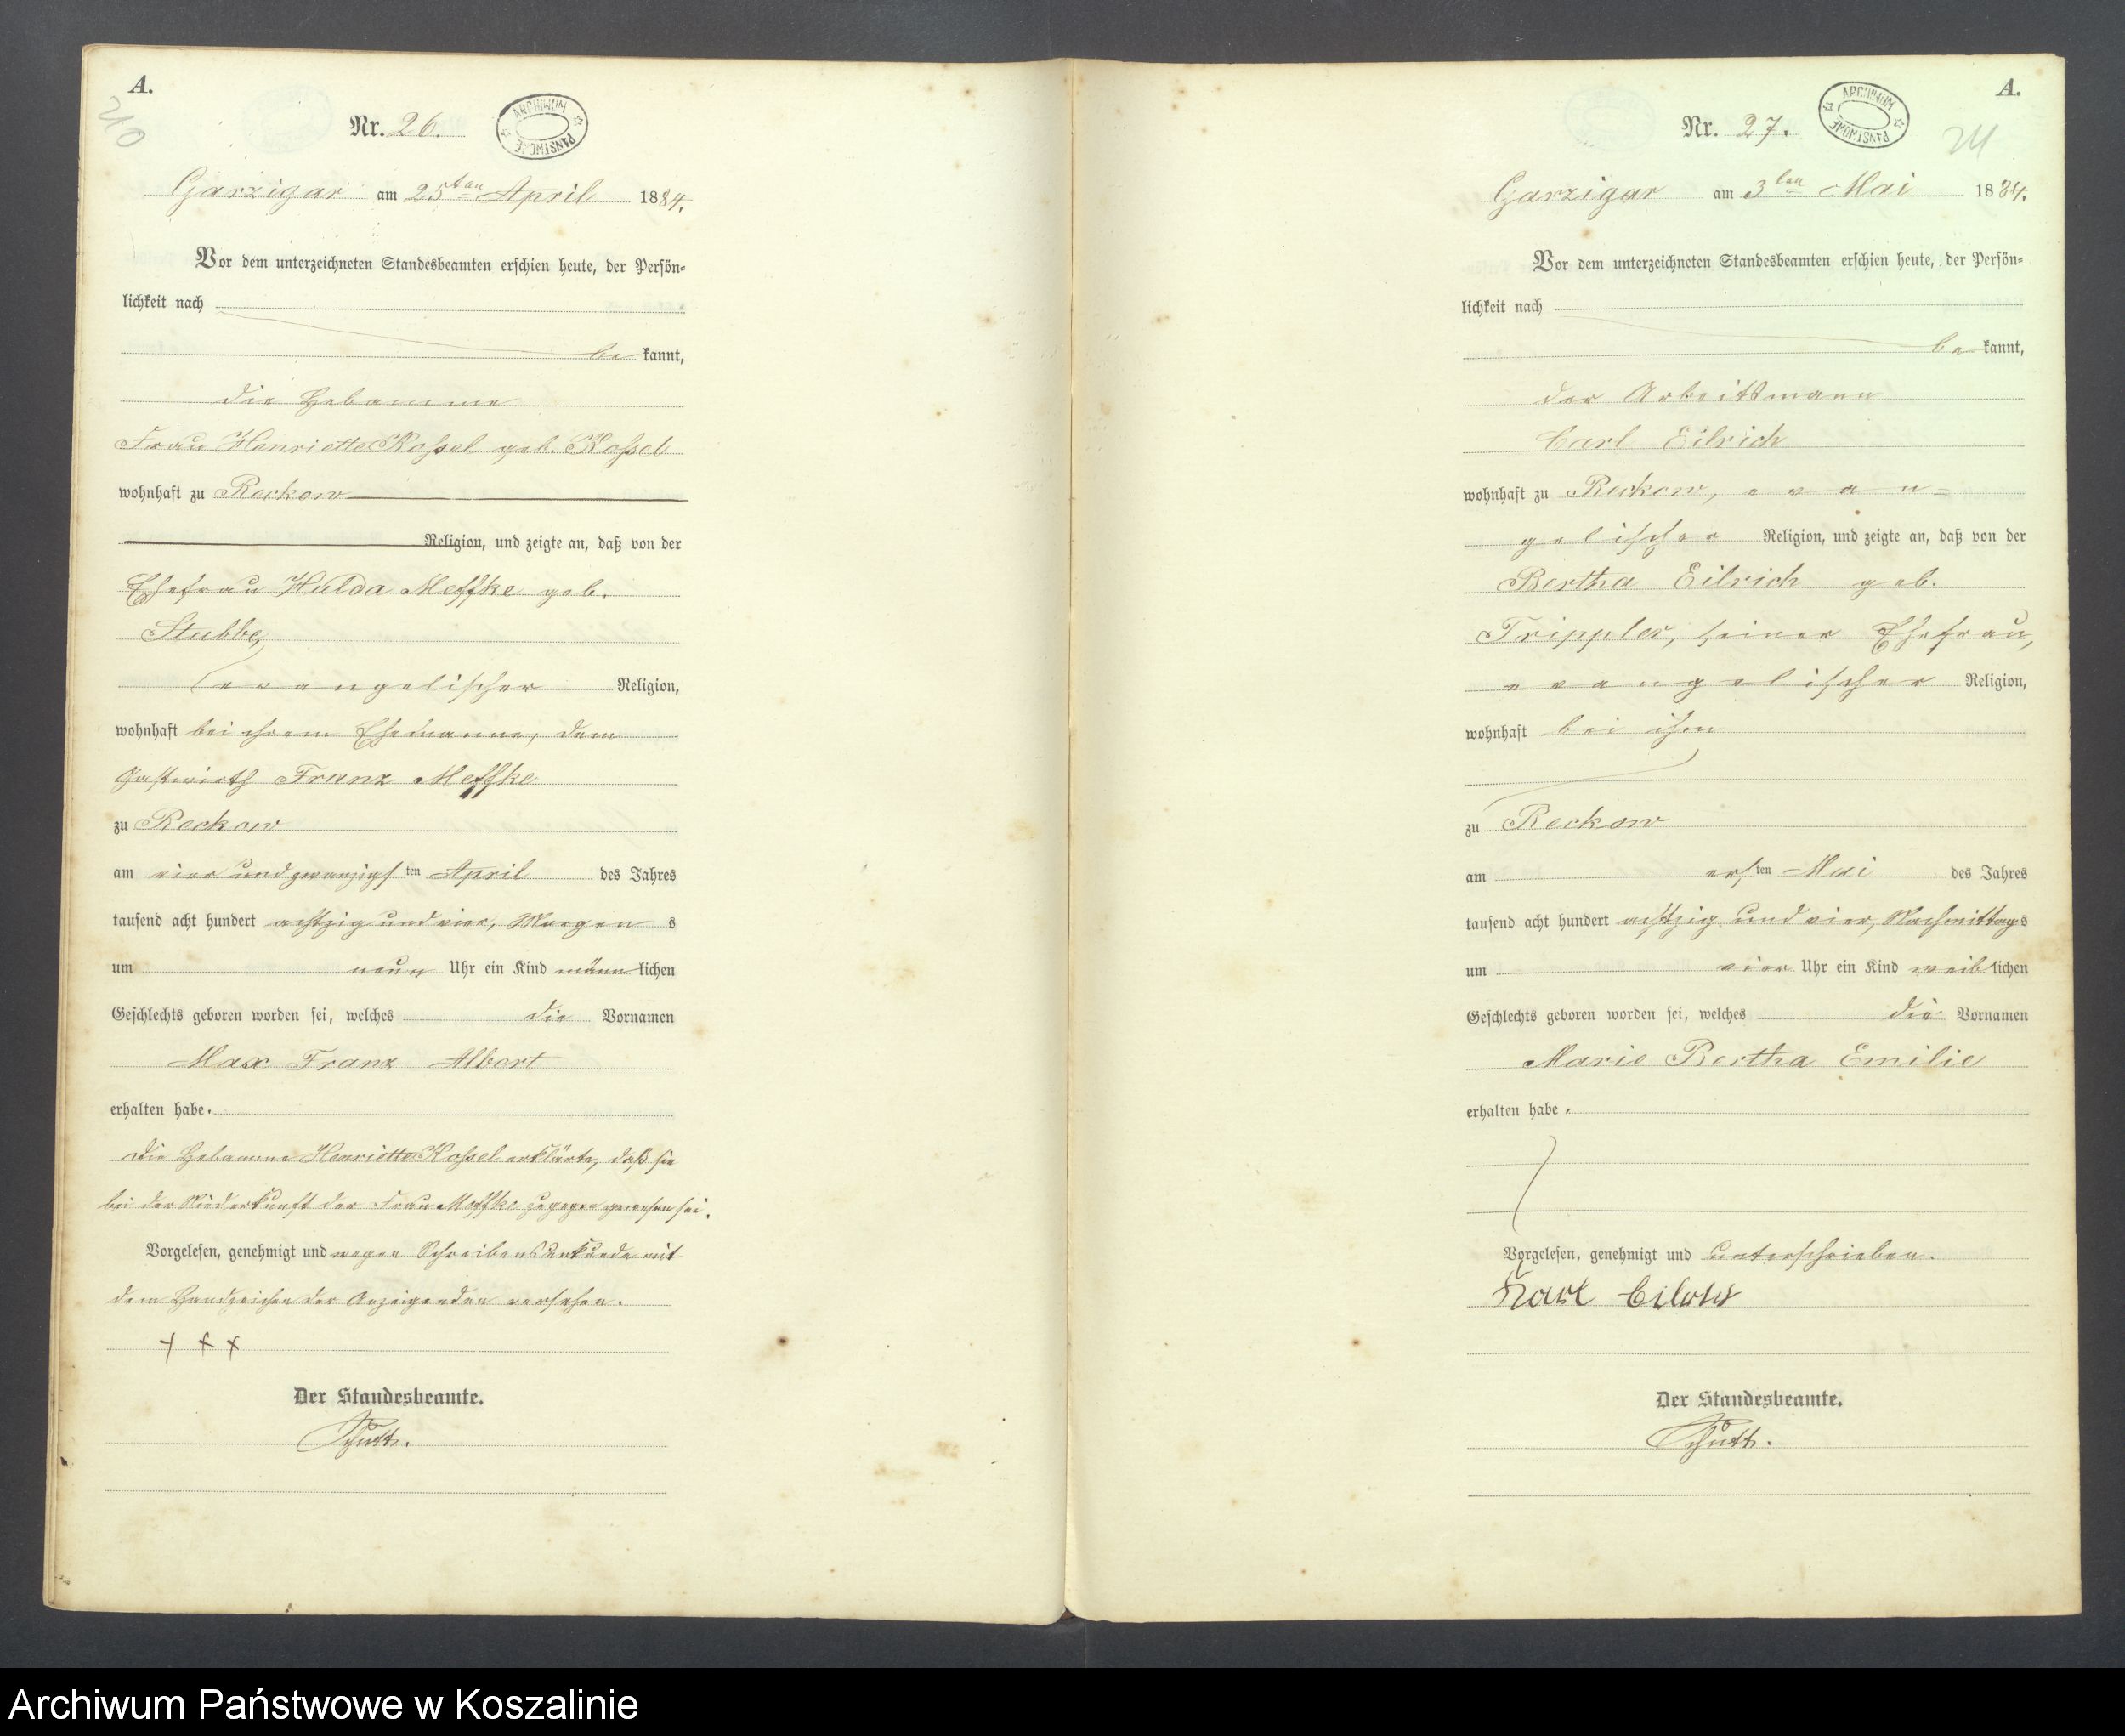 A.
Nr. 26.
ARCHIWUM PAŃSTWOWE
Garzigar am 25ten April 1884.
Vor dem unterzeichneten Standesbeamten erschien heute, der Persön=
lichkeit nach
bekannt,
die Hebamme
Frau Henriette Koßel geb. Koßel
wohnhaft zu Reckow
Religion, und zeigte an, daß von der
Ehefrau Hulda Meffke geb.
Stubbe,
evangelischer Religion,
wohnhaft bei ihrem Ehemanne, dem
Gastwirth Franz Meffke
zu Reckow
am vier und zwanzigsten April des Jahres
tausend acht hundert achtzig und vier, Morgens
um neun Uhr ein Kind männlichen
Geschlechts geboren worden sei, welches die Vornamen
Max Franz Albert
erhalten habe.
Die Hebamme Henriette Koßel erklärte, daß sie
bei der Niederkunft der Frau Meffke zugegen gewesen sei.
Vorgelesen, genehmigt und wegen Schreibensunkunde mit
dem Handzeichen der Anzeigenden versehen.
+ + +
Der Standesbeamte.
A.
Nr. 27.
ARCHIWUM PAŃSTWOWE
Garzigar am 3ten Mai 1884.
Vor dem unterzeichneten Standesbeamten erschien heute, der Persön=
lichkeit nach
bekannt,
der Arbeitsmann
Carl Eilrich
wohnhaft zu Reckow, evan=
gelischer Religion, und zeigte an, daß von der
Bertha Eilrich geb.
Trippler, seiner Ehefrau,
evangelischer Religion,
wohnhaft bei ihm
zu Reckow
am ersten Mai des Jahres
tausend acht hundert achtzig und vier, Nachmittags
um vier Uhr ein Kind weiblichen
Geschlechts geboren worden sei, welches die Vornamen
Marie Bertha Emilie
erhalten habe.
Vorgelesen, genehmigt und unterschrieben.
Karl
Der Standesbeamte.
Archiwum Państwowe w Koszalinie